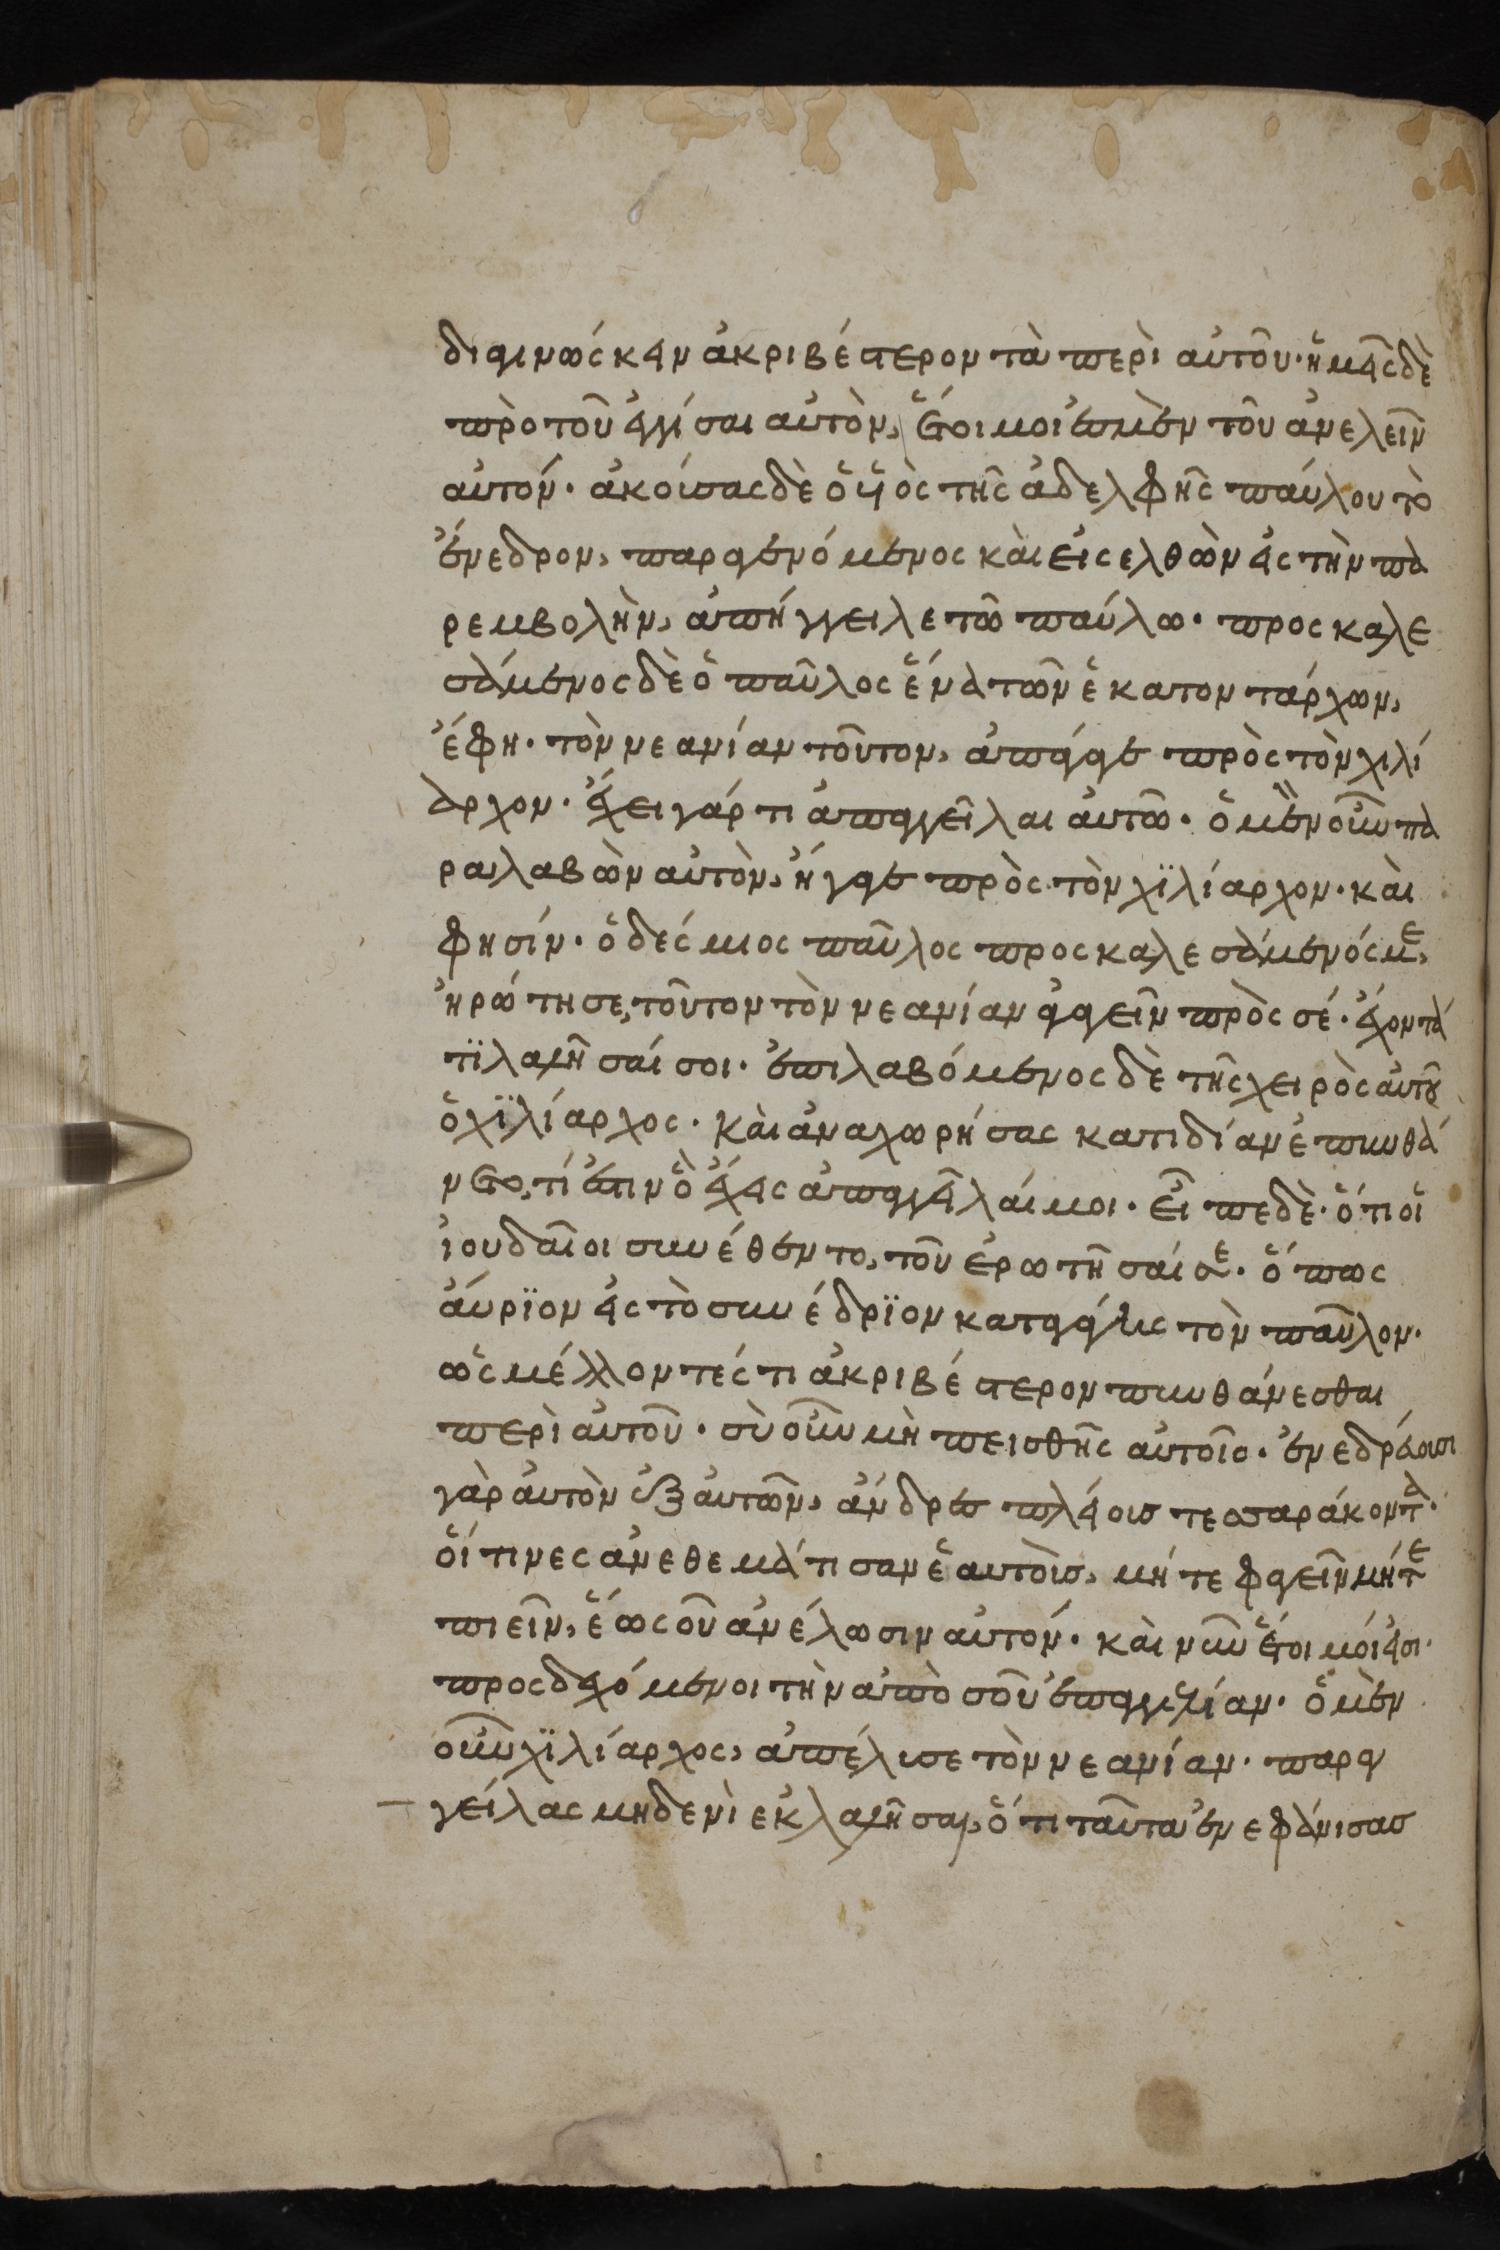 διαγινώσκειν ἀκριβέστερον τὰ περὶ αὐτοῦ· ἡμεῖς δὲ
πρὸ τοῦ ἐγγίσαι αὐτὸν, ἕτοιμοι ἐσμὲν τοῦ ἀνελεῖν
αὐτόν· ἀκούσας δὲ ὁ υἱὸς τῆς ἀδελφῆς παύλου τὸ
ἔνεδρον, παραγενόμενος καὶ εἰσελθὼν εἰς τὴν πα
ρεμβολὴν, ἀπήγγειλε τῶ παύλω· προσκαλε
σάμενος δὲ ὁ παῦλος ἕνα τῶν ἑκατοντάρχων,
ἔφη· τὸν νεανίαν τοῦτον, ἀπάγαγε πρὸς τὸν χιλί
αρχον· ἔχει γάρ τι ἀπαγγεῖλαι αὐτῶ· ὁ μὲν οὖν πα
ραλαβὼν αὐτὸν, ἤγαγε πρὸς τὸν χϊλίαρχον· καὶ
φησίν· ὁ δέσμιος παῦλος προσκαλεσάμενός με,
ἠρώτησε, τοῦτον τὸν νεανίαν ἀγαγεῖν πρὸς σέ· ἔχοντά
τϊ λαλῆσαί σοι· ἐπιλαβόμενος δὲ τῆς χειρὸς αὐτοῦ
ὁ χϊλίαρχος· καὶ ἀναχωρήσας κατιδίαν ἐπυνθά
νετο, τί ἐστιν ὃ ἔχεις ἀπαγγεῖλαί μοι· εἶπε δὲ· ὅτι οἱ
ἰουδαῖοι συνέθεντο, τοῦ ἐρωτῆσαί σε· ὅπως
αὔρϊον εἰς τὸ συνέδρϊον καταγάγῃς τὸν παῦλον·
ὡς μέλλοντές τι ἀκριβέστερον πυνθάνεσθαι
περὶ αὐτοῦ· σὺ οὖν μὴ πεισθῆς αὐτοῖς· ἐνεδρεύουσι
γὰρ αὐτὸν ἐξ αὐτῶν, ἄνδρες πλείους τεσσαράκοντα·
οἵτινες ἀνεθεμάτισαν ἑαυτοὺς, μήτε φαγεῖν μήτε
πιεῖν, ἕως οὗ ἀνέλωσιν αὐτόν· καὶ νῦν ἕτοιμοί εἰσι·
προσδεχόμενοι τὴν ἀπὸ σοῦ ἐπαγγελίαν· ὁ μὲν
οὖν χϊλίαρχος, ἀπέλυσε τὸν νεανίαν· παραγ
γείλας μηδενὶ ἐκλαλῆσαι, ὅτι ταῦτα ἐνεφάνισας